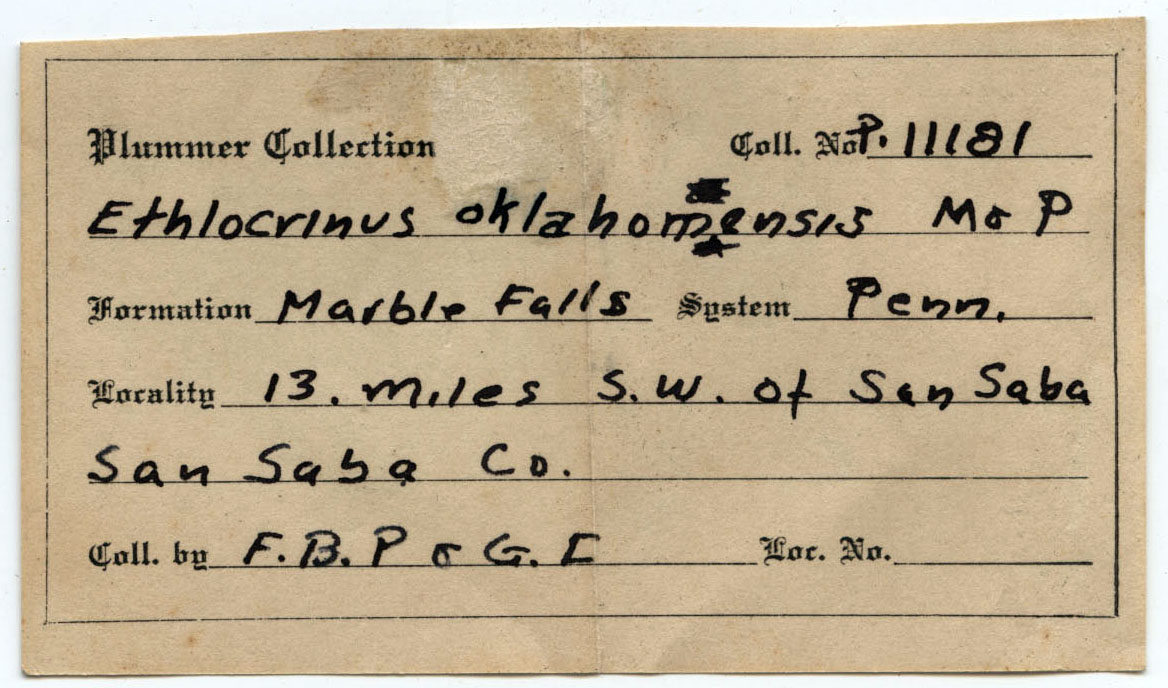 Plummer Collection Coll. No. P. 11181
Ethlocrinus oklahomensis M & P
Formation Marble Falls System Penn.
Locality 13. miles S.W. of San Saba
San Saba Co.
Coll. by F. B. P & G. E Loc. No.